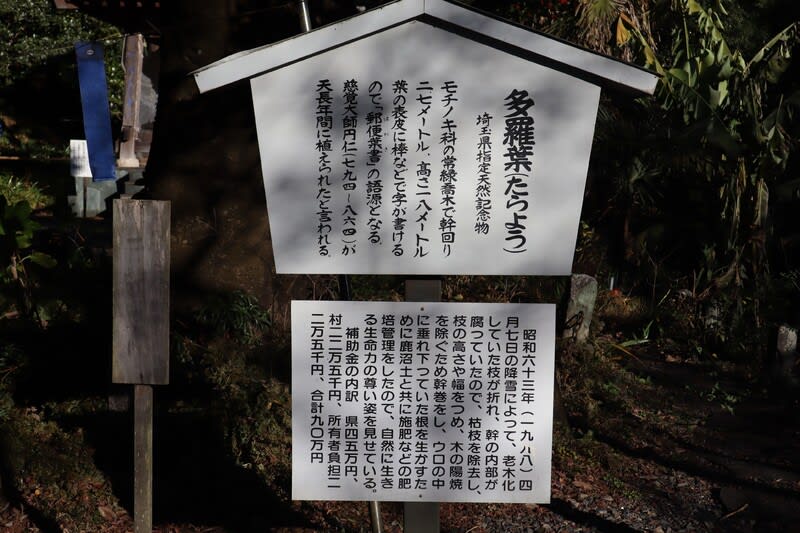 多羅葉(たらよう)
埼玉県指定天然記念物
モチノキ科の常緑喬木で幹回り
二七メートル、高さ一八メートル
葉の表皮に棒などで字が書ける
ので「郵便葉書」の語源となる。
はがき
慈覚大師円仁(七九四~八六四)が
天長年間に植えられたと言われる。
昭和六十三年(一九八八)四
月七日の降雪によって、老木化
していた枝が折れ、幹の内部が
腐っていたので、枯枝を除去し、
枝の高さや幅をつめ、木の陽焼
を除くため幹巻をし、ウロの中
に垂れ下っていた根を生かすた
めに鹿沼土と共に施肥などの肥
培管理をしたので、自然に生き
る生命力の尊い姿を見せている。
補助金の内訳 県四五万円、
村二二万五千円、所有者負担二
二万五千円、合計九〇万円